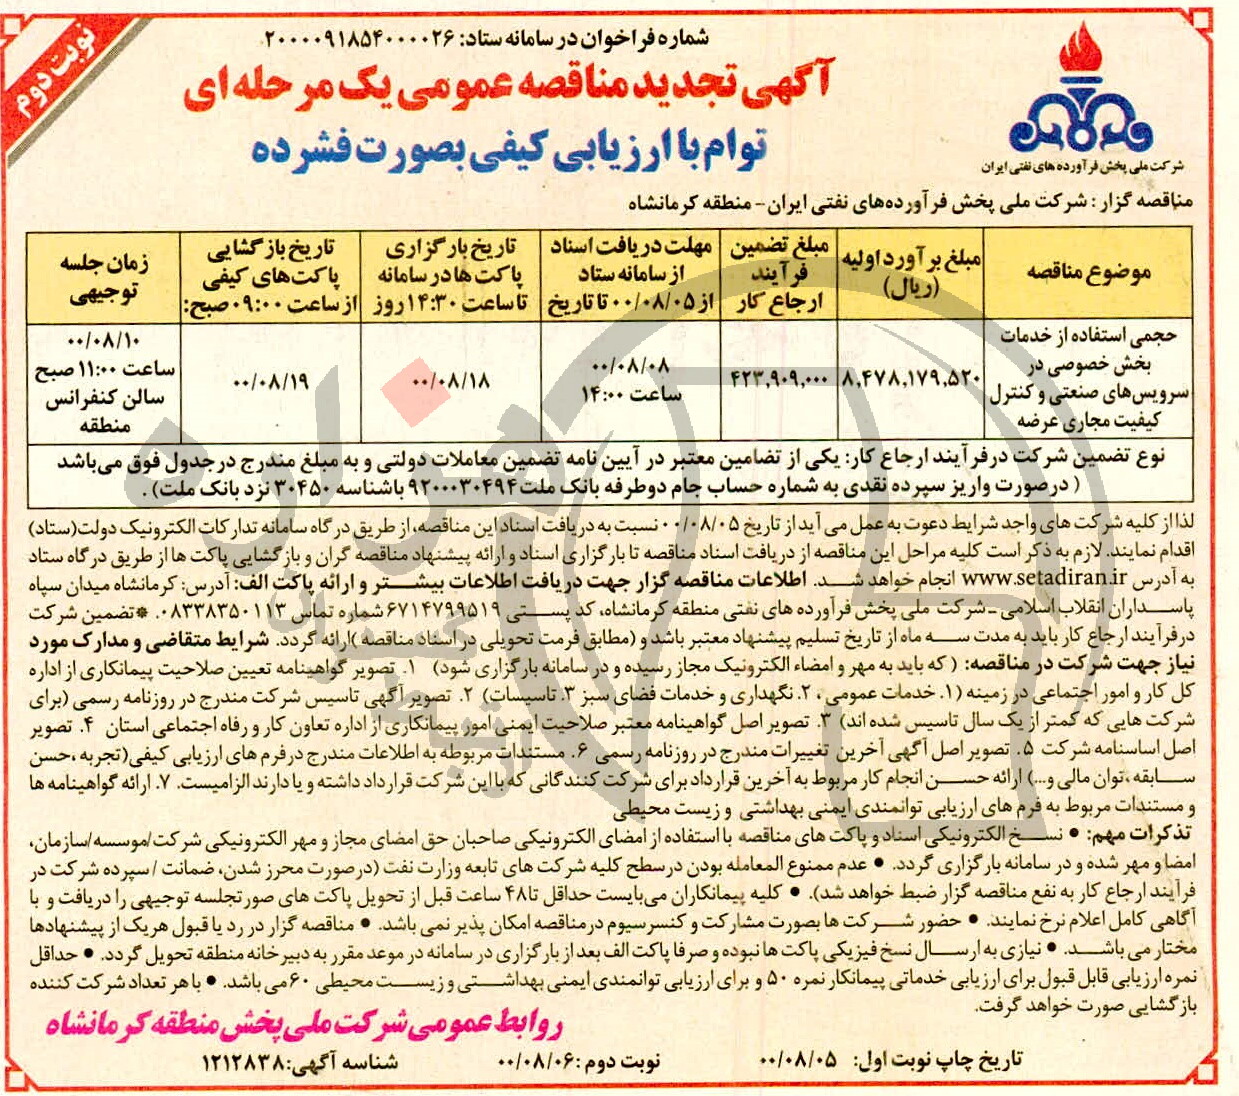 نوبت دوم
شماره فراخوان در سامانه ستاد: ۲۰۰۰۰۹۱۸۵۴۰۰۰۰۲۶
آگهی تجدید مناقصه عمومی یک مرحله ای
توام با ارزیابی کیفی بصورت فشرده
شرکت ملی پخش فرآورده های نفتی ایران
مناقصه گزار : شرکت ملی پخش فرآورده‌های نفتی ایران- منطقه کرمانشاه
موضوع مناقصه
مبلغ برآورد اولیه
(ریال)
مبلغ تضمین
فرآیند
ارجاع کار
مهلت دریافت اسناد
از سامانه ستاد
از ۰۰/۰۸/۰۵ تا تاریخ
تاریخ بارگزاری
پاکت ها در سامانه
تا ساعت ۱۴:۳۰ روز
تاریخ بازگشایی
پاکت‌های کیفی
از ساعت ۰۹:۰۰ صبح:
زمان جلسه
توجیهی
حجمی استفاده از خدمات
بخش خصوصی در
سرویس‌های صنعتی و کنترل
کیفیت مجاری عرضه
۸,۴۷۸,۱۷۹,۵۲۰
۴۲۳,۹۰۹,۰۰۰
۰۰/۰۸/۰۸
ساعت ۱۴:۰۰
۰۰/۰۸/۱۸
۰۰/۰۸/۱۹
۰۰/۰۸/۱۰
ساعت ۱۱:۰۰ صبح
سالن کنفرانس
منطقه
نوع تضمین شرکت درفرآیند ارجاع کار: یکی از تضامین معتبر در آیین نامه تضمین معاملات دولتی و به مبلغ مندرج درجدول فوق می‌باشد
( درصورت واریز سپرده نقدی به شماره حساب جام دوطرفه بانک ملت ۹۲۰۰۰۳۰۴۹۴ باشناسه ۳۰۴۵۰ نزد بانک ملت) .
لذا از کلیه شرکت های واجد شرایط دعوت به عمل می آید از تاریخ ۰۰/۰۸/۰۵ نسبت به دریافت اسناد این مناقصه، از طریق درگاه سامانه تدارکات الکترونیک دولت(ستاد)
اقدام نمایند. لازم به ذکر است کلیه مراحل این مناقصه از دریافت اسناد مناقصه تا بارگزاری اسناد و ارائه پیشنهاد مناقصه گران و بازگشایی پاکت ها از طریق درگاه ستاد
به آدرس www.setadiran.ir انجام خواهد شد. اطلاعات مناقصه گزار جهت دریافت اطلاعات بیشتر و ارائه پاکت الف: آدرس: کرمانشاه میدان سپاه
پاسداران انقلاب اسلامی -شرکت ملی پخش فرآورده های نفتی منطقه کرمانشاه، کد پستی ۶۷۱۴۷۹۹۵۱۹ شماره تماس ۰۸۳۳۸۳۵۰۱۱۳. *تضمین شرکت
درفرآیند ارجاع کار باید به مدت سه ماه از تاریخ تسلیم پیشنهاد معتبر باشد و (مطابق فرمت تحویلی در اسناد مناقصه )ارائه گردد. شرایط متقاضی و مدارک مورد
نیاز جهت شرکت در مناقصه: ( که باید به مهر و امضاء الکترونیک مجاز رسیده و در سامانه بارگزاری شود) ۱. تصویر گواهینامه تعیین صلاحیت پیمانکاری از اداره
کل کار و امور اجتماعی در زمینه (۱. خدمات عمومی ، ۲. نگهداری و خدمات فضای سبز ۳. تاسیسات) ۲. تصویر آگهی تاسیس شرکت مندرج در روزنامه رسمی (برای
شرکت هایی که کمتر از یک سال تاسیس شده اند) ۳. تصویر اصل گواهینامه معتبر صلاحیت ایمنی امور پیمانکاری از اداره تعاون کار و رفاه اجتماعی استان ۴. تصویر
اصل اساسنامه شرکت ۵. تصویر اصل آگهی آخرین تغییرات مندرج در روزنامه رسمی ۶. مستندات مربوطه به اطلاعات مندرج درفرم های ارزیابی کیفی(تجربه ،حسن
سابقه ،توان مالی و...) ارائه حسن انجام کار مربوط به آخرین قرارداد برای شرکت کنندگانی که با این شرکت قرارداد داشته و یا دارند الزامیست. ۷. ارائه گواهینامه ها
و مستندات مربوط به فرم های ارزیابی توانمندی ایمنی بهداشتی و زیست محیطی
تذکرات مهم: • نسخ الکترونیکی اسناد و پاکت های مناقصه با استفاده از امضای الکترونیکی صاحبان حق امضای مجاز و مهر الکترونیکی شرکت/موسسه/سازمان،
امضا و مهر شده و در سامانه بارگزاری گردد. • عدم ممنوع المعامله بودن درسطح کلیه شرکت های تابعه وزارت نفت (درصورت محرز شدن، ضمانت / سپرده شرکت در
فرآیند ارجاع کار به نفع مناقصه گزار ضبط خواهد شد). • کلیه پیمانکاران می‌بایست حداقل تا ۴۸ ساعت قبل از تحویل پاکت های صورتجلسه توجیهی را دریافت و با
آگاهی کامل اعلام نرخ نمایند. • حضور شرکت ها بصورت مشارکت و کنسرسیوم درمناقصه امکان پذیر نمی باشد. • مناقصه گزار در رد یا قبول هریک از پیشنهادها
مختار می باشد. • نیازی به ارسال نسخ فیزیکی پاکت ها نبوده و صرفا پاکت الف بعد از بارگزاری در سامانه در موعد مقرر به دبیرخانه منطقه تحویل گردد. • حداقل
نمره ارزیابی قابل قبول برای ارزیابی خدماتی پیمانکار نمره ۵۰ و برای ارزیابی توانمندی ایمنی بهداشتی و زیست محیطی ۶۰ می باشد. • با هر تعداد شرکت کننده
بازگشایی صورت خواهد گرفت.
روابط عمومی شرکت ملی پخش منطقه کرمانشاه
تاریخ چاپ نوبت اول: ۰۰/۰۸/۰۵ نوبت دوم :۰۰/۰۸/۰۶ شناسه آگهی:۱۲۱۲۸۳۸